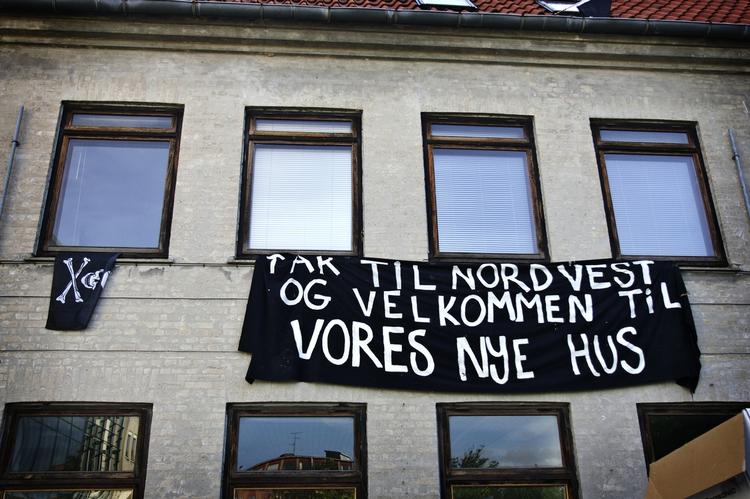 TAK TIL NORDVEST
OG VELKOMMEN TiL
VORES NYE HUS